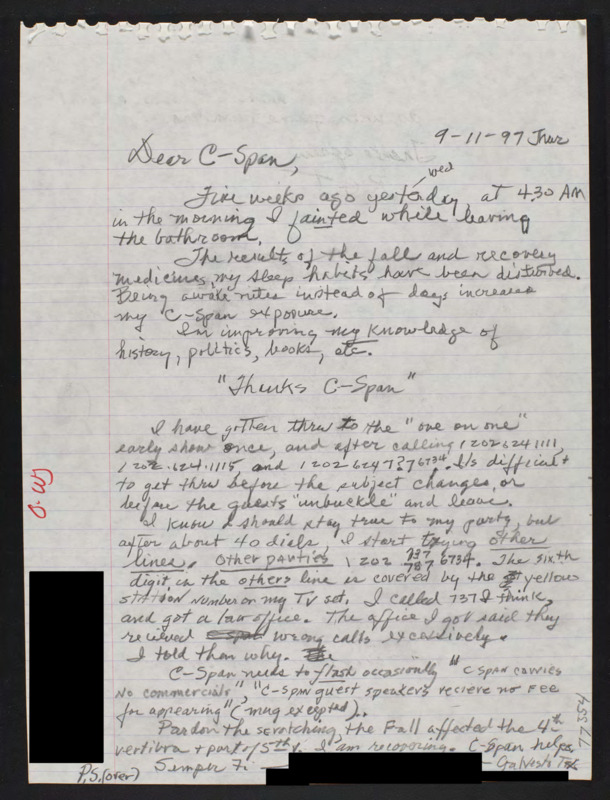 9-11-97 Thur
Dear C-Span,
wed
Five weeks ago yesterday, at 4:30 AM
in the morning I fainted while leaving
the bathroom.
The results of the fall and recovery
medicines, my sleep habits have been disturbed.
Being awake nites instead of days increases
my C-Span exposure.
I'm improving my knowledge of
history, politics, books, etc.
"Thanks C-Span"
I have gotten thru to the "one on one"
early show once, and after calling 1 202 624 1111,
1 202.624.1115, and 1 202 624 737 6734. It's difficult
to get thru before the subject changes, or
before the guests "unbuckle" and leave.
I know I should stay true to my party, but
after about 40 dials, I start trying other
lines. Other parties 1 202 737 6734. The sixth
787
digit in the others line is covered by the yellow
station number on my TV set. I called 737 I think,
and got a law office. The office I got said they
recieved wrong calls excessively.
I told them why.
C-Span needs to flash occasionally "C SPAN carries
No commercials", "C-SPAN guest speakers recieve no fee
for appearing" (mug excepted)..
Pardon the scratching, the Fall affected the 4th
vertibra + part of 5th. I am recovering. C-Span helps.
Semper Fi
Galvestn Tx
P.S. (over)
77554